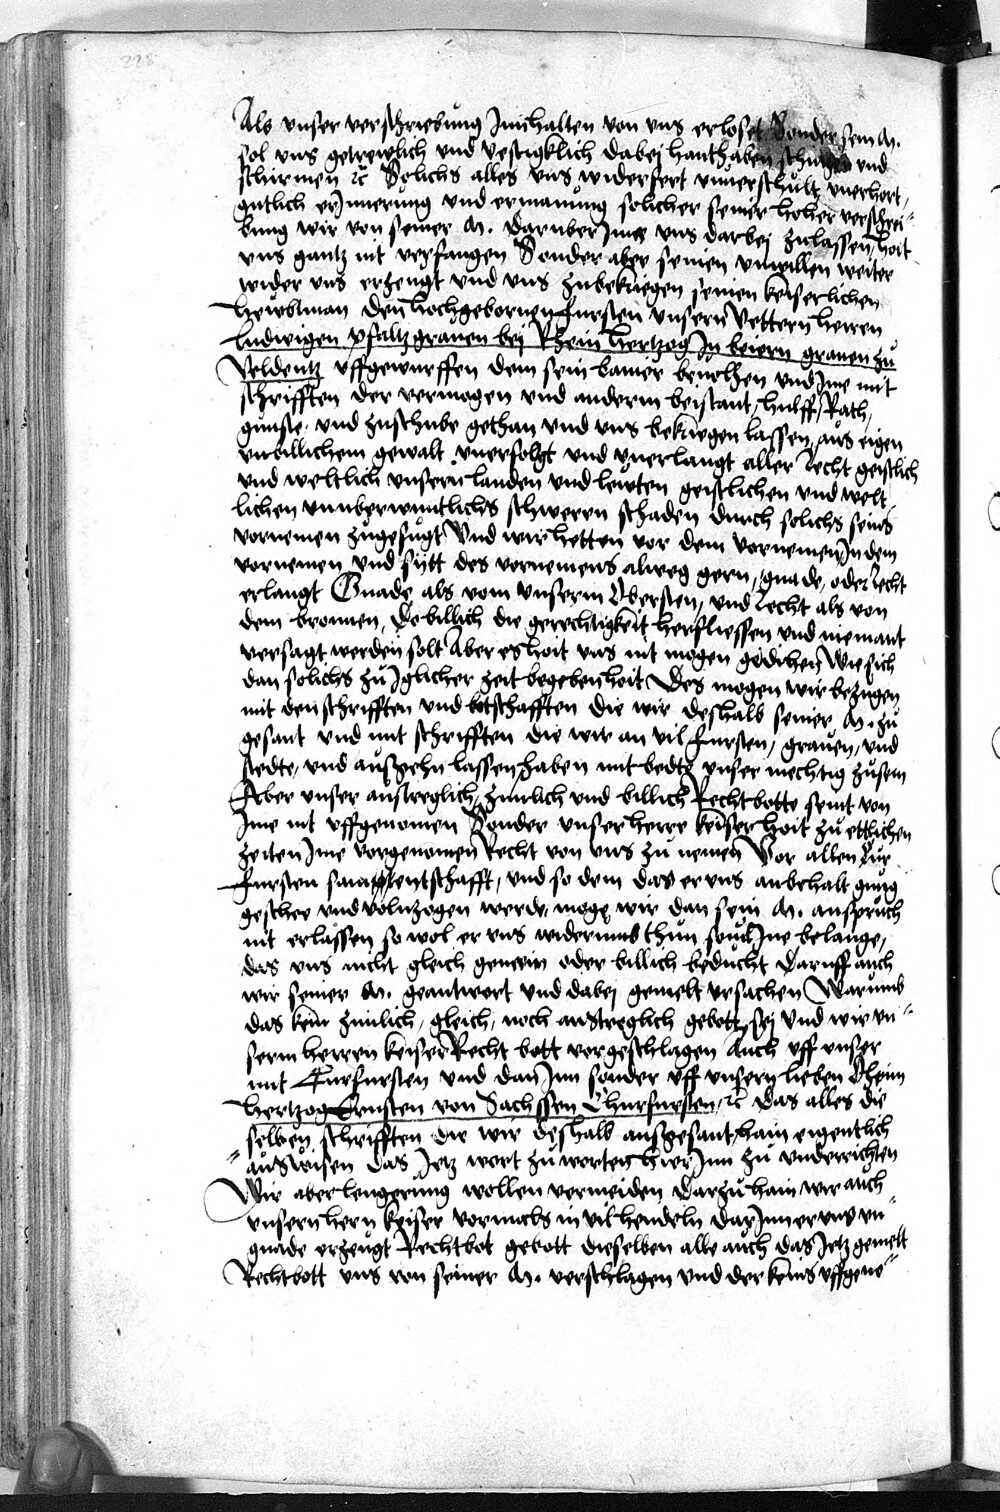 228
Als vnser verschriebung Innhalten von vns erloset Sonder sein M.
sol vns getrewlich vnd vestigklich dabej hanthaben schutzen vnd
schirmen etc Solichs alles vns widerfert vnuerschult vnerhort,
gutlich erInnerung vnd ermanung solicher seiner hoher verschrei-
bung wir von seiner M. daruber Inne vns darbej zulassen, hoit
vns gantz nit verfangen Sonder aber seinen vnwillen weiter
wider vns erzeugt vnd vns zubekriegen seinen keiserlichen
hewbtman den hochgebornen fursten vnsern Vettern herren
Ludwigen pfaltzgrauen bej Rhein hertzog In beiern grauen zu
Veldentz vffgeworffen dem sein banier beuolhen vnd Ime mit
schrifften der vermogen vnd anderm beistant, hulff, Rath,
gunste vnd zuschube gethan vnd vns bekriegen lassen, aus eigen
vnbillichem gewalt vneruolgt vnd vnerlangt aller Recht geistlich
vnd weltlich vnsern landen vnd lewten geistlichen vnd welt
lichen vnuberwintlichs schweren schaden durch solichs seins
vornemen zugefugt Vnd wir hetten vor dem vornemen, In dem
vornemen vnd sijtt des vornemens alweg gern, gnade, oder Recht
erlangt Gnade als vom vnserm Obersten, vnd Recht als von
dem bronnen, Do billich die gerechtigkeit herfliessen vnd niemant
versagt werden solt Aber es hoit vns nit mogen gedihen Wie sich
dan solichs zu Iglicher zeit begeben hoit Des mogen wir bezugen
mit den schrifften vnd botschafften die wir deshalb seiner M. zu
gesant vnd mit schrifften die wir an vil fursten, grauen, vnd
stedte, vnd außgehn lassen haben mit bedte vnser mechtig zusein
Aber vnser austreglich, zimlich vnd billich Rechtbotte seint von
Ime nit vffgenomen Sonder vnser herre keiser hoit zu ettlichen
zeiten Ime vorgenomen Recht von vns zu nemen Vor allen Kur
fursten samentschafft, vnd so dem das er vns anbehalt gnug
geschee vnd volnzogen werde, moge wir dan sein M. anspruch
nit erlassen so wol er vns widerumb thun souil Ine belange,
das vns nicht gleich gemein oder billich beducht Daruff auch
wir seiner M. geantwort vnd dabej gemelt vrsachen Warumb
das kein zimlich, gleich, noch austreglich gebott sej Vnd wir vn-
serm herren keiser Recht bott vorgeschlagen Auch vff vnser
mit Curfursten vnd dan Inn sonder vff vnsern lieben Oheim
hertzog Ernsten von Sachssen Churfursten, etc das alles die
selben schrifften die wir deshalb außgesant hain eigentlich
außwisen das Jetz wort zu worten hier Inn zu vnderrichten
Wir aber lengerung wollen vermeiden Darzu hain wir auch
vnsern hern keiser vormals in vil hendeln dar Inn er vns vn-
gnade erzeugt Rechtbot gebott dieselben alle auch das Jetz gemelt
Rechtbott vns von seiner M. verschlagen vnd der keins vffgeno-